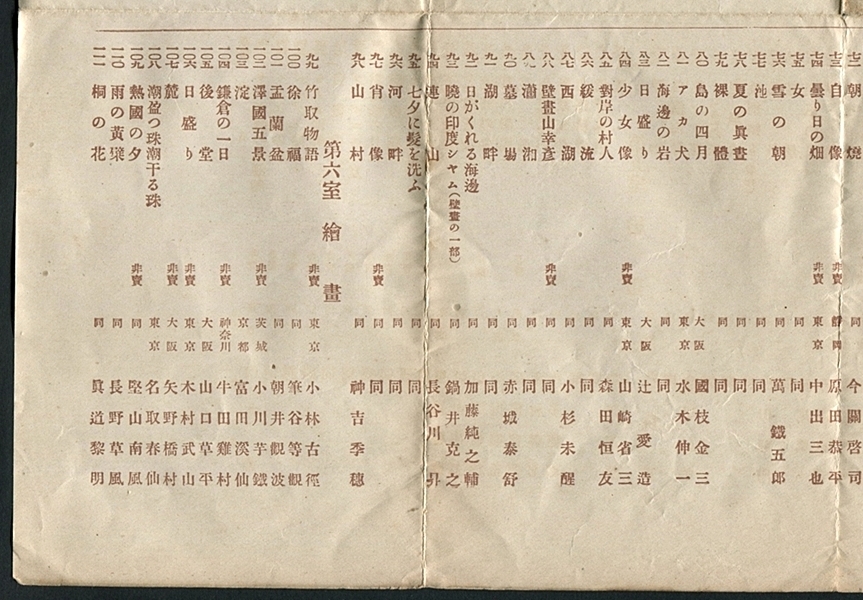 七二 朝燒 同 今關啓司
七三 自像 非賣 靜岡 原田恭平
七四 曇り日の畑 非賣 東京 中出三也
七五 女 同 同
七六 雪の朝 同 萬鐵五郎
七七 池 同 同
七九 裸體 同 同
七八 夏の眞晝 同 同
八〇 島の四月 大阪 國枝金三
八一 アカ犬 東京 水木伸一
八二 海邊の岩 同 同
八三 日盛り 大阪 辻愛造
八四 少女像 非賣 東京 山崎省三
八五 對岸の村人 同 森田恒友
八六 緩流 同 同
八七 西湖 同 小杉未醒
八八 壁畫山幸彥 非賣 同 同
八九 瀟湘 同 同
九〇 墓場 同 赤城泰舒
九一 湖畔 同 同
九二 日がくれる海邊 同 加藤純之輔
九三 曉の印度シヤム(壁畫の一部) 同 鍋井克之
九四 連山 同 長谷川昇
九五 七夕に髮を洗ふ 同 同
九六 河畔 同 同
九七 肖像 非賣 同 同
九八 山村 同 神吉季穗
第六室 繪畫
九九 竹取物語 非賣 東京 小林古徑
一〇〇 徐福 同 筆谷等觀
一〇一 盂蘭盆 同 朝井觀波
一〇二 澤國五景 非賣 茨城 小川芋錢
一〇三 淀 京都 富田溪仙
一〇四 鎌倉の一日 非賣 神奈川 牛田雞村
一〇五 後堂 大阪 山口草平
一〇六 日盛り 非賣 東京 木村武山
一〇七 麓 非賣 大阪 矢野橋村
一〇八 潮盈つ珠潮干る珠 東京 名取春仙
一〇九 熱國の夕 非賣 同 堅山南風
一一〇 雨の黃檗 同 長野草風
一一一 桐の花 同 眞道黎明